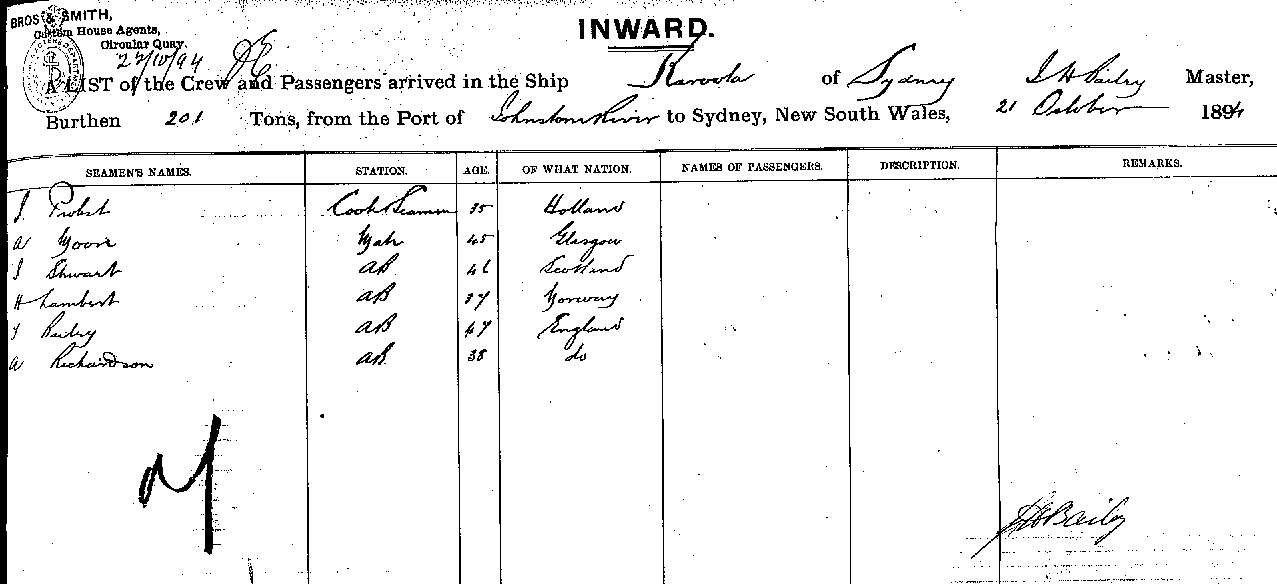 BROS & SMITH,
Custom House Agents,
Circular Quay.
INWARD.
A LIST of the Crew and Passengers arrived in the Ship Karoola of Sydney J H Bailey Master,
Burthen 201 Tons, from the Port of Johnstone River to Sydney, New South Wales, 21 October 1894
SEAMEN'S NAMES. STATION. AGE. OF WHAT NATION. NAMES OF PASSENGERS. DESCRIPTION. REMARKS.
J Probst Cook & Seaman 35 Holland
a Mate 45 Glasgow
J Stewart AB 46 Scotland
H Lambert AB 37 Norway
Bailey AB 47 England
a Richardson AB 38 do
J H Bailey